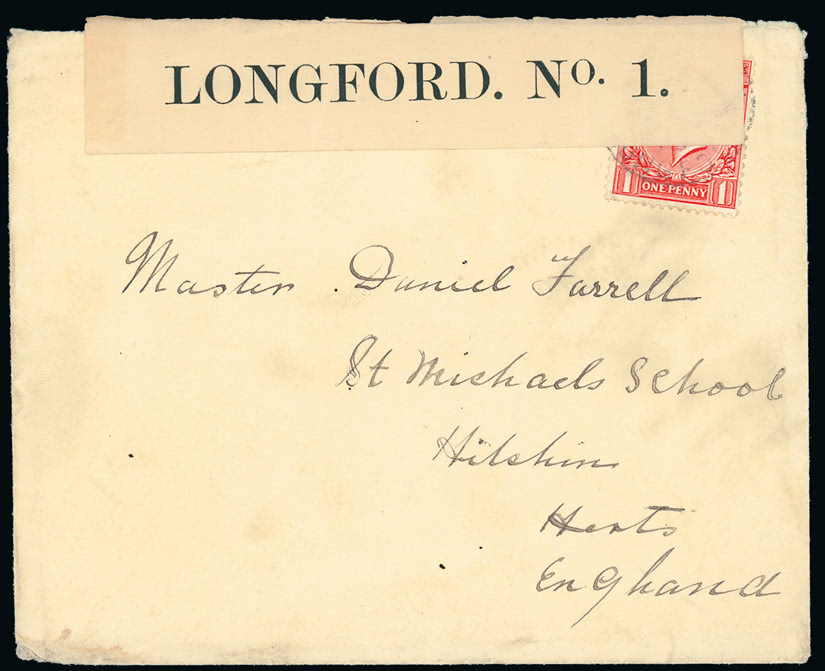 LONGFORD. No. 1.
1 ONE PENNY 1
Master Daniel Farrell
St Michaels School
Hitchin
Herts
England